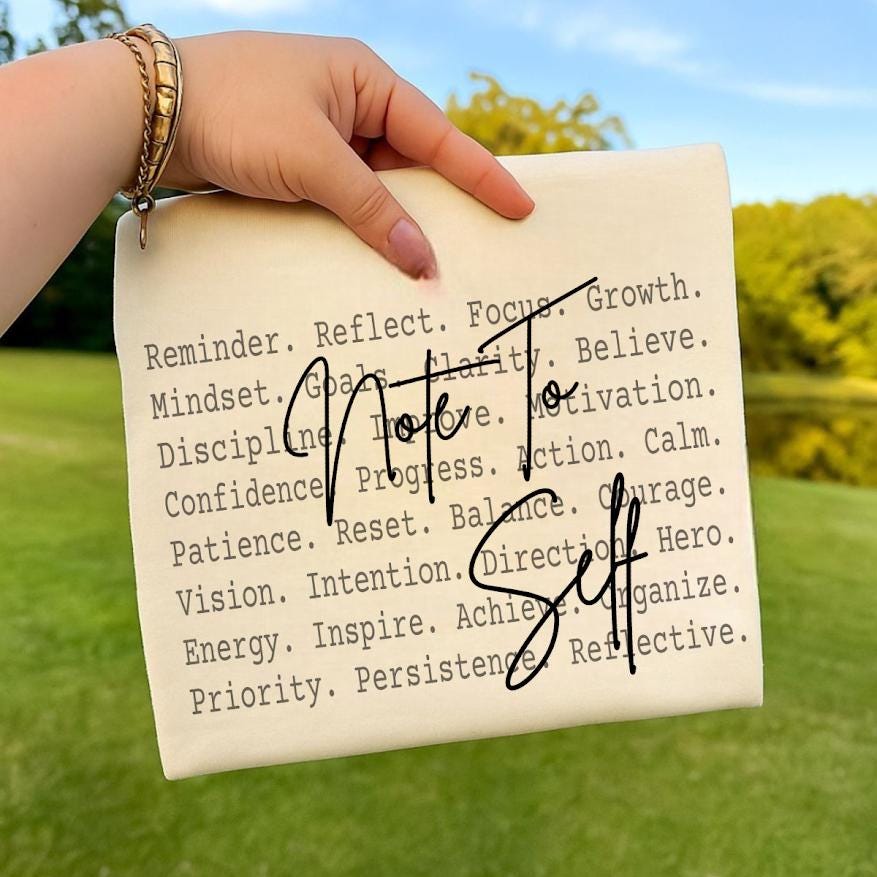 Reminder. Reflect. Focus. Growth.
Mindset. Goals. Clarity. Believe.
Discipline. Improve. Motivation.
Confidence. Progress. Action. Calm.
Patience. Reset. Balance. Courage.
Vision. Intention. Direction. Hero.
Energy. Inspire. Achieve. Organize.
Priority. Persistence. Reflective.
Note To
Self